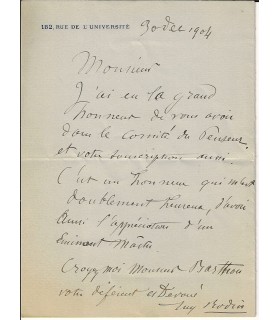 182, RUE DE L'UNIVERSITÉ
30 dec 1904
Monsieur
J'ai eu le grand
honneur de vous avoir
dans le Comité du Penseur
et votre souscription aussi.
C'est un honneur qui m'est
doublement heureux, d'avoir
ainsi l'appréciation d'un
Eminent Maître
Croyez moi Monsieur Barthou
votre déférent et Dévoué
Aug Rodin